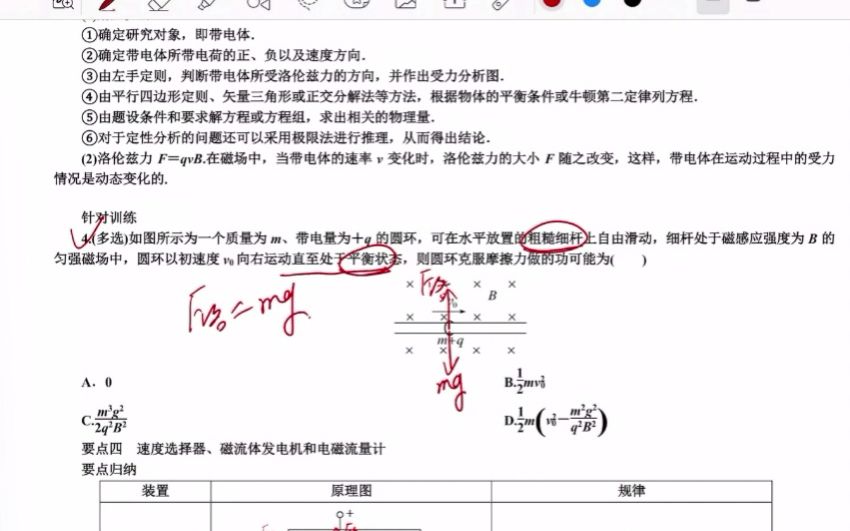 ①确定研究对象，即带电体.
②确定带电体所带电荷的正、负以及速度方向.
③由左手定则，判断带电体所受洛伦兹力的方向，并作出受力分析图.
④由平行四边形定则、矢量三角形或正交分解法等方法，根据物体的平衡条件或牛顿第二定律列方程.
⑤由题设条件和要求解方程或方程组，求出相关的物理量.
⑥对于定性分析的问题还可以采用极限法进行推理，从而得出结论.
(2)洛伦兹力 F＝qvB.在磁场中，当带电体的速率 v 变化时，洛伦兹力的大小 F 随之改变，这样，带电体在运动过程中的受力
情况是动态变化的.
针对训练
4.(多选)如图所示为一个质量为 m、带电量为＋q 的圆环，可在水平放置的粗糙细杆上自由滑动，细杆处于磁感应强度为 B 的
匀强磁场中，圆环以初速度 v₀ 向右运动直至处于平衡状态，则圆环克服摩擦力做的功可能为(　　)
F洛=mg
F洛
× × × ×
B
v₀
× × × ×
m+q
× × × ×
mg
A．0
B.½mv₀²
C.m³g²/2q²B²
D.½m(v₀²－m²g²/q²B²)
要点四　速度选择器、磁流体发电机和电磁流量计
要点归纳
装置 原理图 规律
+